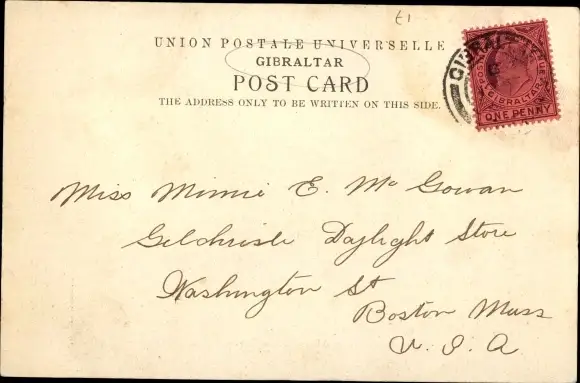 £1
UNION POSTALE UNIVERSELLE
GIBRALTAR
POST CARD
THE ADDRESS ONLY TO BE WRITTEN ON THIS SIDE.
GIBRALTAR
GIBRALTAR
ONE PENNY
Miss Minnie E. Mc Gowan
Gilchrist Daylight Store
Washington St
Boston Mass
U. S. A.